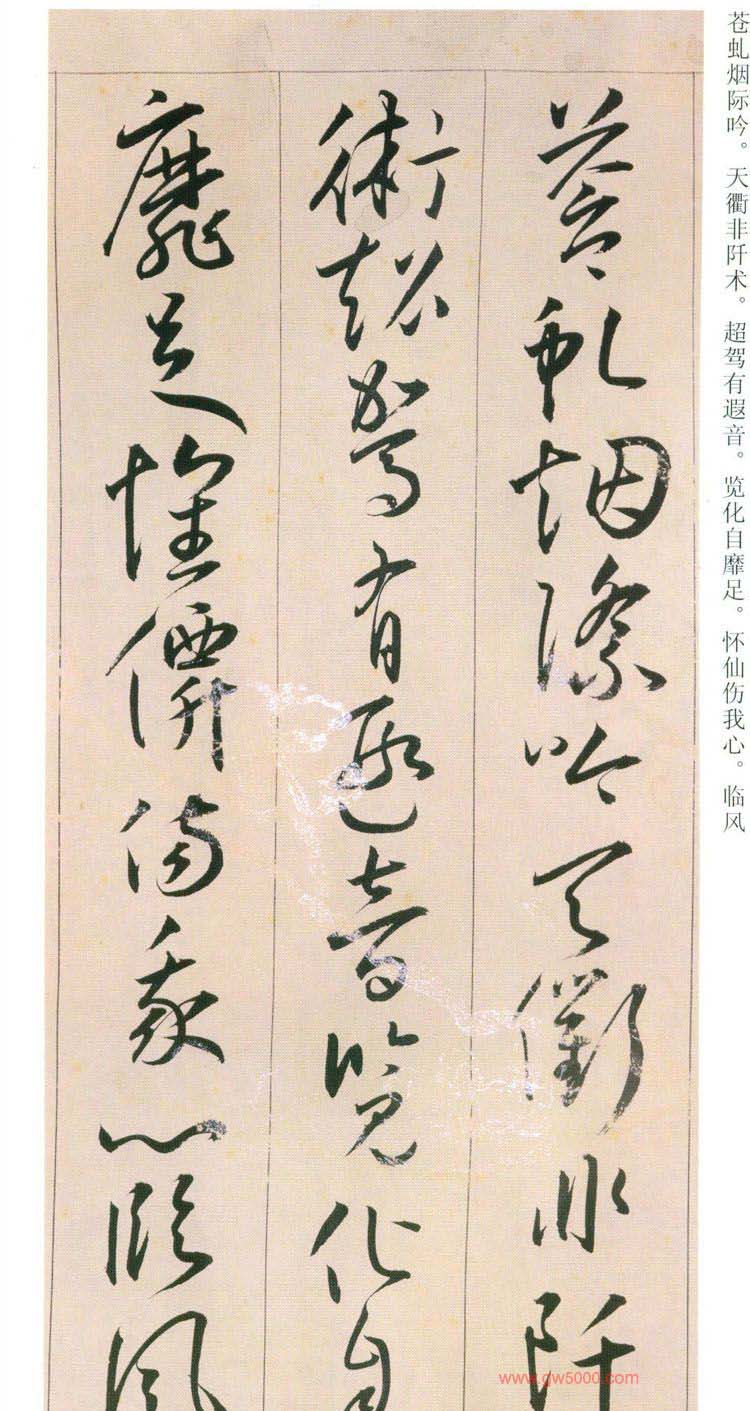 苍虬烟际吟。天衢非阡术。超驾有遐音。览化自靡足。怀仙伤我心。临风
蒼虬烟際吟天衢非阡
術超駕有遐音覽化自
靡足懷僊傷我心臨風
www.qw5000.com